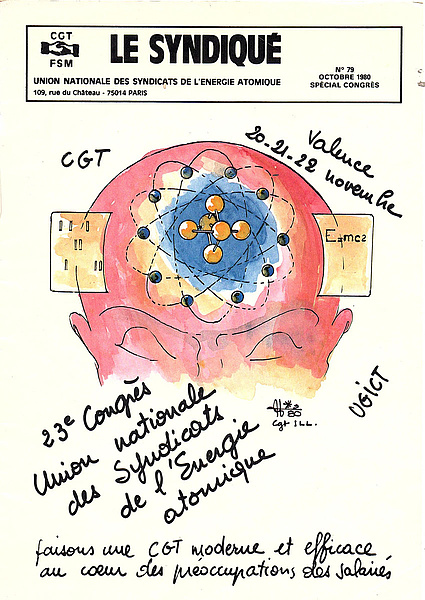 CGT
FSM
LE SYNDIQUÉ
UNION NATIONALE DES SYNDICATS DE L'ENERGIE ATOMIQUE
109, rue du Château - 75014 PARIS
N° 79
OCTOBRE 1980
SPÉCIAL CONGRÈS
CGT
Valence
20-21-22 novembre
E=mc2
UGICT
23e Congrès
Union nationale
des Syndicats
de l'Energie
atomique
80
Cgt ILL.
faisons une CGT moderne et efficace
au cœur des préoccupations des salariés